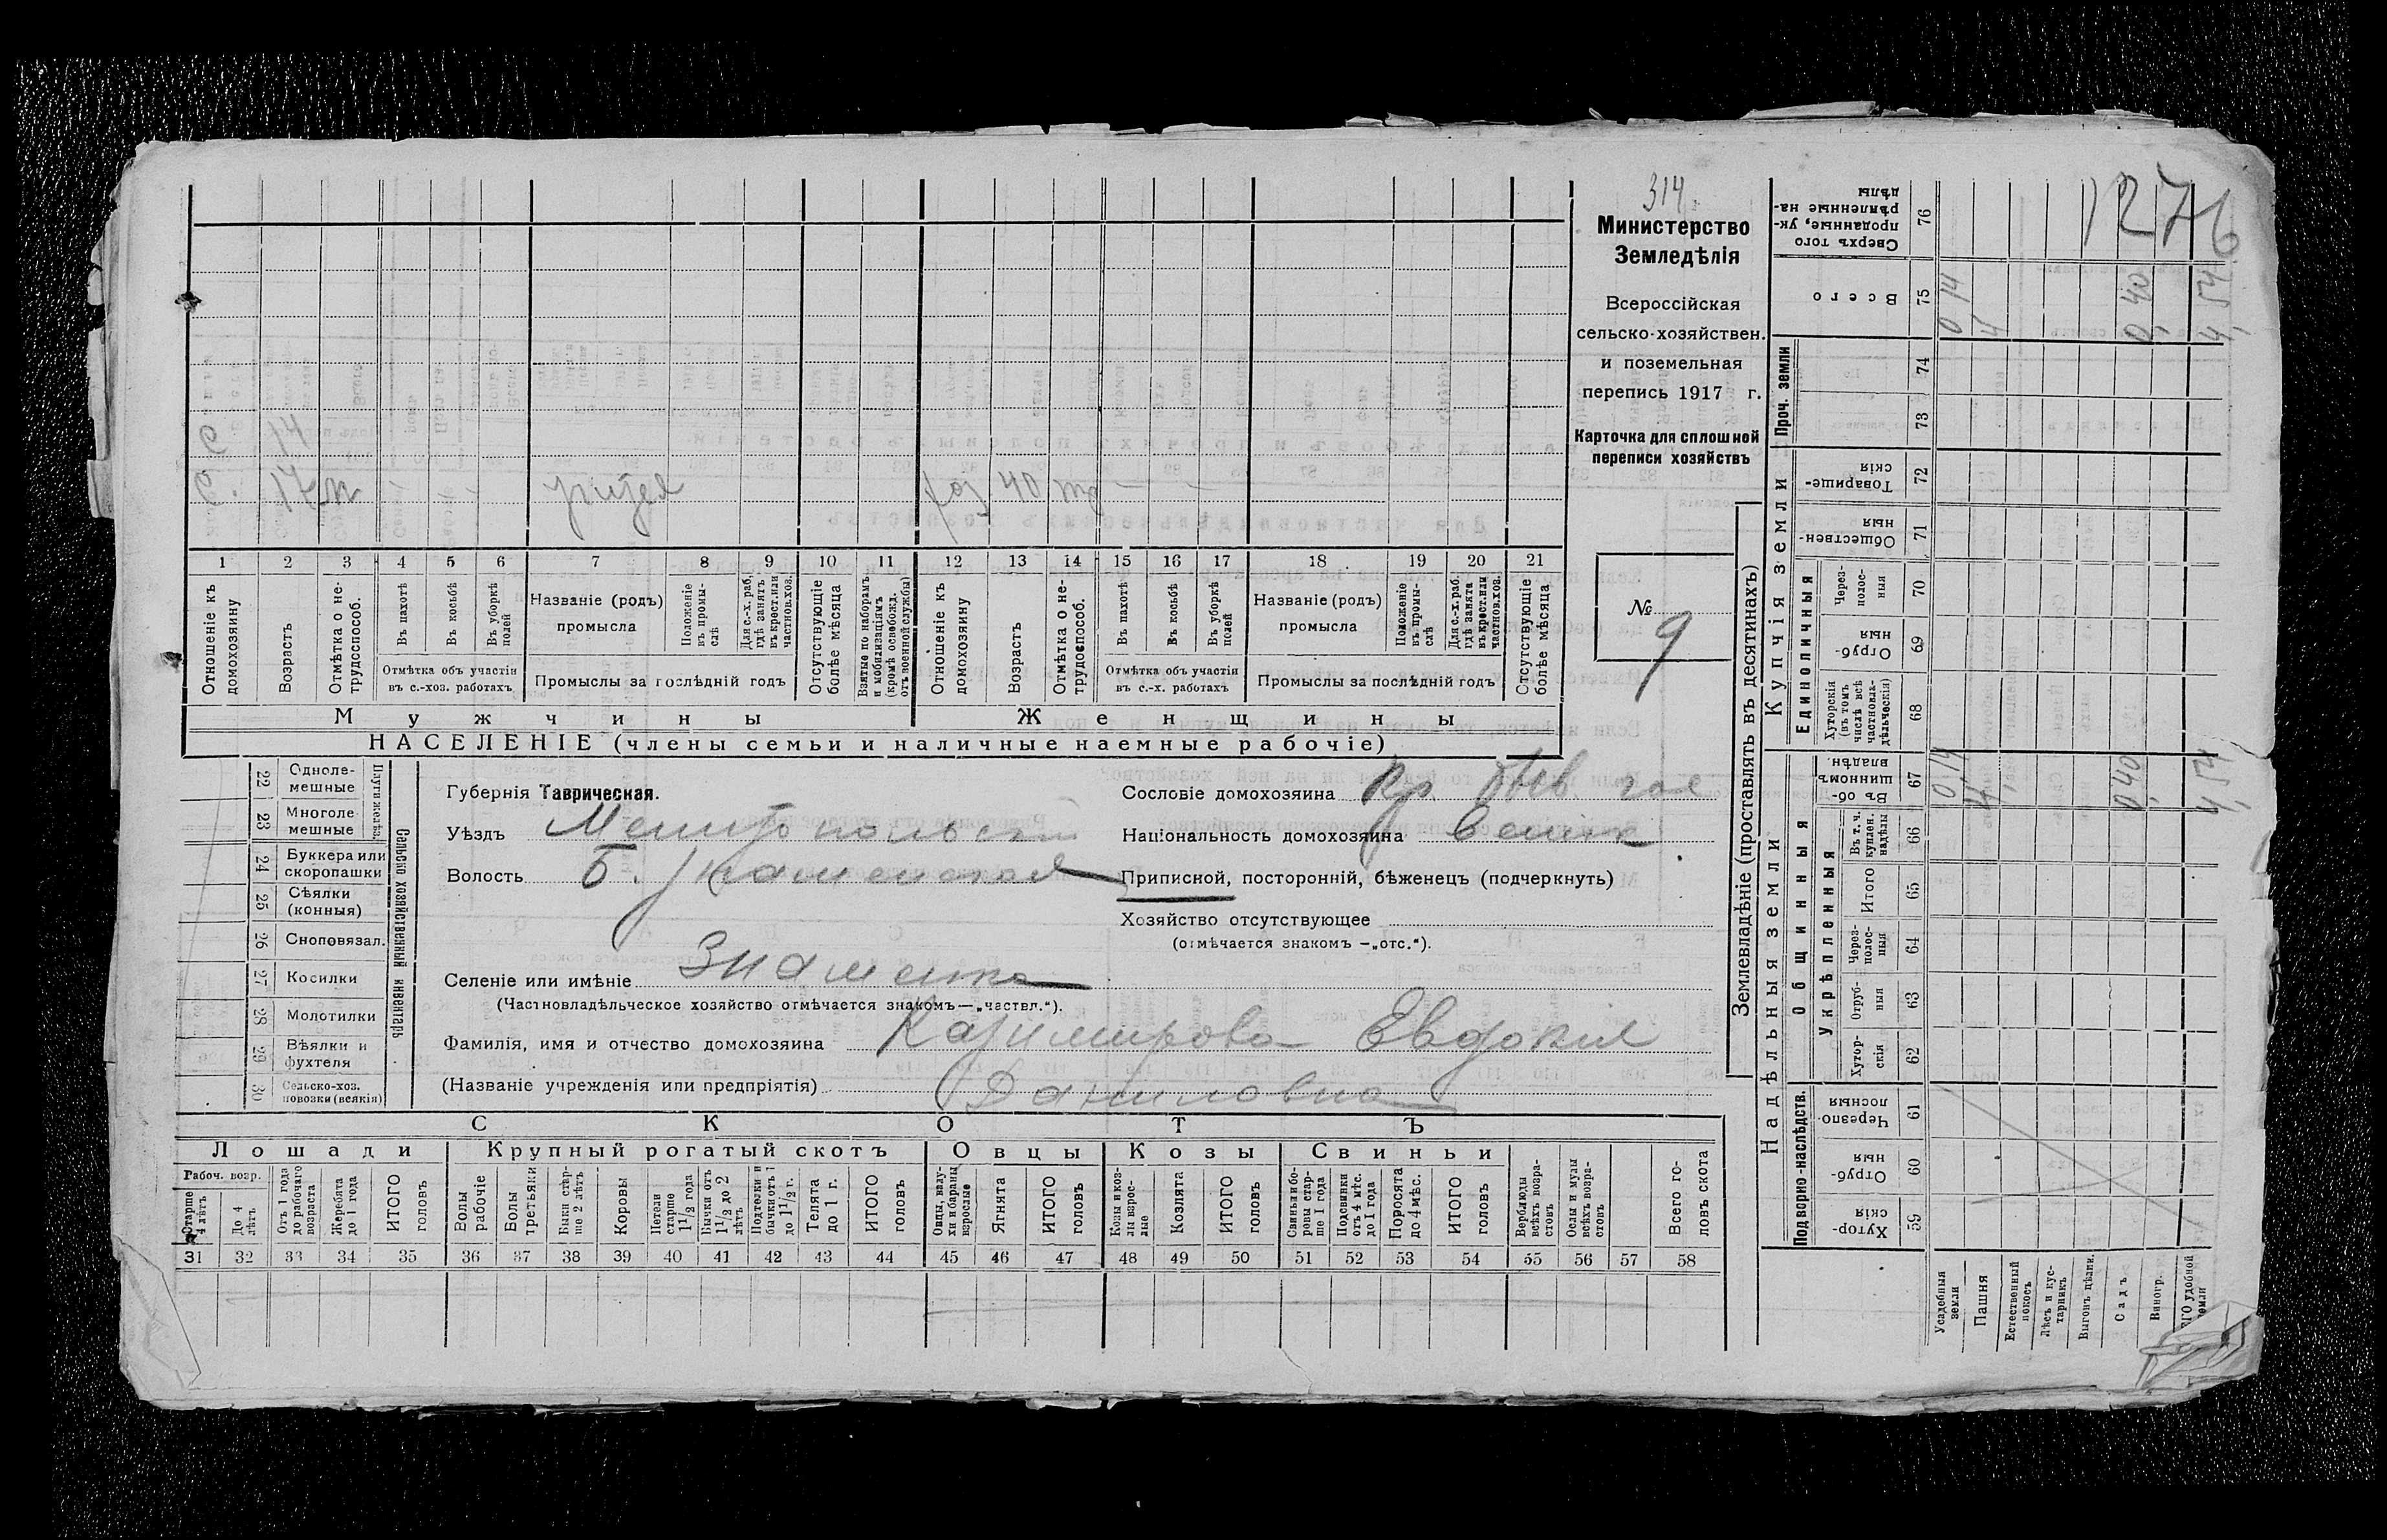 314.
Министерство
Земледѣлія
Всероссійская
сельско-хозяйствен.
и поземельная
перепись 1917 г.
Карточка для сплошной
переписи хозяйствъ
№ 9
С. 14
С. 17
хоз 40
1 2 3 4 5 6 7 8 9 10 11 12 13 14 15 16 17 18 19 20 21
Отношеніе къ домохозяину
Возрастъ
Отмѣтка о не-трудоспособ.
Въ пахотѣ
Въ косьбѣ
Въ уборкѣ полей
Отмѣтка объ участіи
въ с.-хоз. работахъ
Названіе (родъ)
промысла
Положеніе въ промы-слѣ
Для с.-х. раб, гдѣ занятъ въ крест. или частнов. хоз.
Промыслы за послѣдній годъ
Отсутствующіе болѣе мѣсяца
Взятые по наборамъ и мобилизаціямъ (кромѣ освобожд. отъ военной службы)
Отношеніе къ домохозяину
Возрастъ
Отмѣтка о не-трудоспособ.
Въ пахотѣ
Въ косьбѣ
Въ уборкѣ полей
Отмѣтка объ участіи
въ с.-х. работахъ
Названіе (родъ)
промысла
Положеніе въ промы-слѣ
Для с.-х. раб. гдѣ занята въ крест. или частнов. хоз.
Промыслы за послѣдній годъ
Отсутствующіе болѣе мѣсяца
Мужчины Женщины
НАСЕЛЕНІЕ (члены семьи и наличные наемные рабочіе)
Сельско хозяйственный инвентарь
Плуги желѣз.
22 Одноле-мешные
23 Многоле-мешные
24 Буккера или скоропашки
25 Сѣялки (конныя)
26 Сноповязал.
27 Косилки
28 Молотилки
29 Вѣялки и фухтеля
30 Сельско-хоз. повозки (всякія)
Губернія Таврическая.
Уѣздъ Мелитопольск
Волость Б. Знаменская
Селеніе или имѣніе Знаменка
(Частновладѣльческое хозяйство отмѣчается знакомъ—„частвл.“).
Фамилія, имя и отчество домохозяина Казимирова Евдокия
(Названіе учрежденія или предпріятія) Даниловна
Сословіе домохозяина Кр.
Національность домохозяина Велик
Приписной, посторонній, бѣженецъ (подчеркнуть)
Хозяйство отсутствующее
(отмѣчается знакомъ —„отс.“).
СКОТЪ
Лошади Крупный рогатый скотъ Овцы Козы Свиньи
Рабоч. возр.
Старше 4 лѣтъ
До 4 лѣтъ
Отъ 1 года до рабочаго возраста
Жеребята до 1 года
ИТОГО головъ
Волы рабочіе
Волы третьяки
Быки стар-ше 2 лѣтъ
Коровы
Нетели старше 1 1/2 года
Бычки отъ 1 1/2 до 2 лѣтъ
Подтелки и бычки отъ 1 до 1 1/2 г.
Телята до 1 г.
ИТОГО головъ
Овцы, валу-хи и бараны взрослые
Ягнята
ИТОГО головъ
Козы и коз-лы взрос-лые
Козлята
ИТОГО головъ
Свиньи и бо-ровы стар-ше 1 года
Подсвинки отъ 4 мѣс. до 1 года
Поросята до 4 мѣс.
ИТОГО головъ
Верблюды всѣхъ возра-стовъ
Ослы и мулы всѣхъ возра-стовъ
Всего го-ловъ скота
31 32 33 34 35 36 37 38 39 40 41 42 43 44 45 46 47 48 49 50 51 52 53 54 55 56 57 58
Землевладѣніе (проставлять въ десятинахъ)
Надѣльныя земли
Купчія земли
Проч. земли
Подворно-наслѣдств.
Общинныя
Укрѣпленныя
Единоличныя
Сверхъ того проданные, ук-рѣпленные на-дѣлы 76
Всего 75 0 14 4 0,40 4,54
74
73
Товарище-скія 72
Обществен-ныя 71
Через-полос-ныя 70
Отруб-ныя 69
Хуторскія (въ томъ числѣ всѣ частновла-дѣльческія) 68
Въ об-щинномъ владѣн. 67 0,14 4, 0,40 4,54
Въ т. ч. куплен. надѣлы 66
Итого 65
Через-полос-ныя 64
Отруб-ныя 63
Хутор-скія 62
Черезпо-лосныя 61
Отруб-ныя 60
Хутор-скія 59
Усадебныя земли
Пашня
Естественный покосъ
Лѣсъ и кус-тарникъ
Выгонъ цѣлин.
Садъ
Виногр.
удобной земли
1276